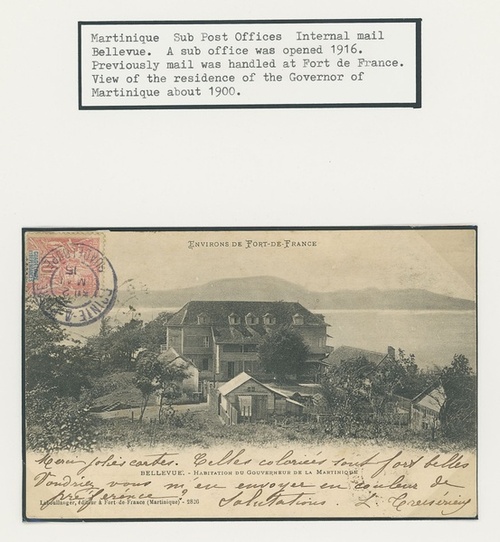 Martinique Sub Post Offices Internal mail
Bellevue. A sub office was opened 1916.
Previously mail was handled at Fort de France.
View of the residence of the Governor of
Martinique about 1900.
ENVIRONS DE FORT-DE-FRANCE
BELLEVUE. - HABITATION DU GOUVERNEUR DE LA MARTINIQUE
Merci jolies cartes. Celles coloriées sont fort belles
Voudriez vous m'en envoyer en couleur de
préférence?
Salutations
éditeur à Fort-de-France (Martinique) - 2826